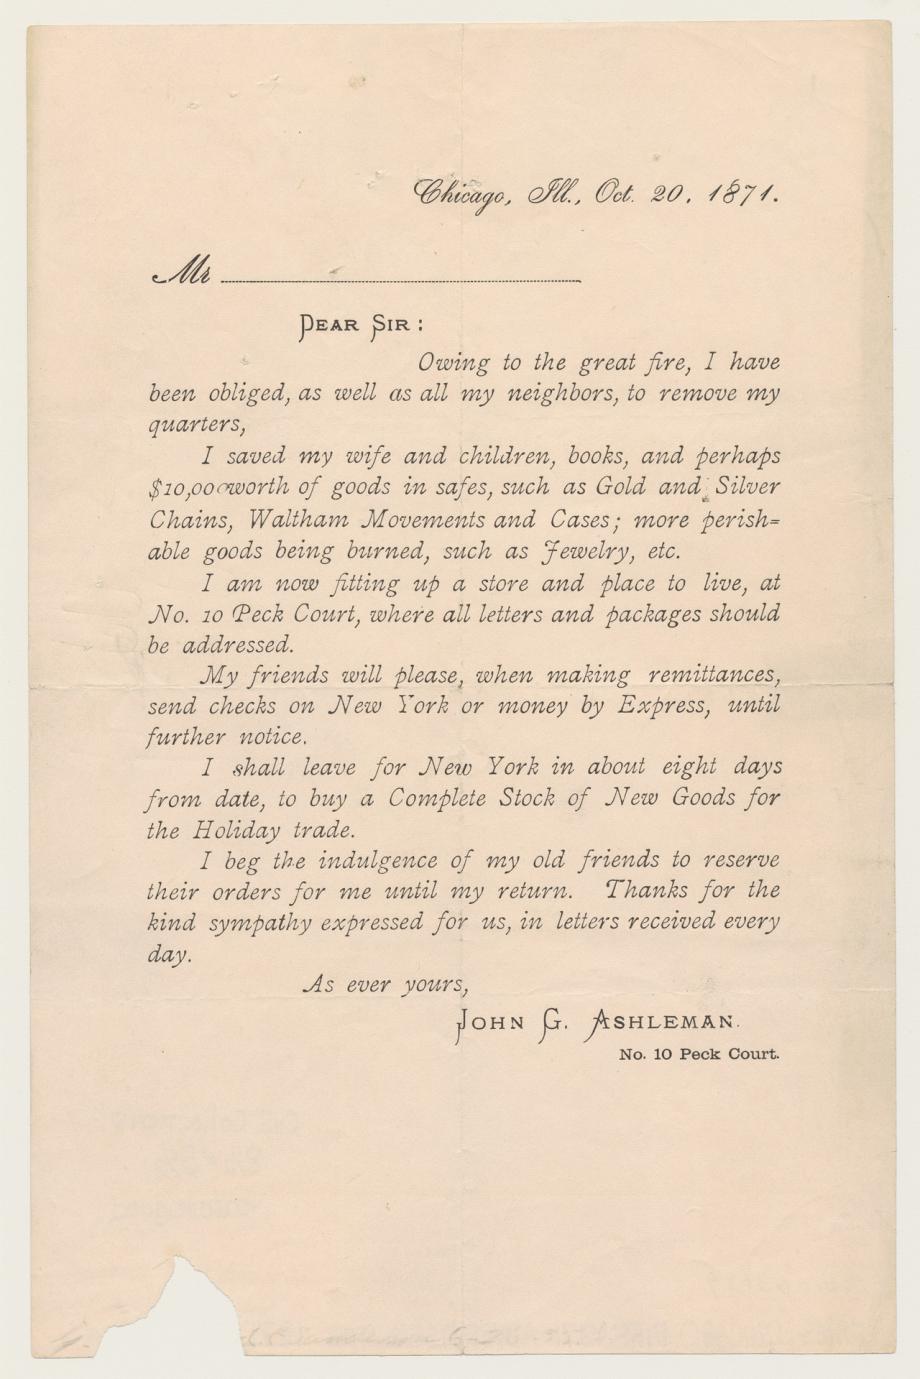 Chicago, Ill., Oct. 20. 1871.
Mr
DEAR SIR:
Owing to the great fire, I have
been obliged, as well as all my neighbors, to remove my
quarters,
I saved my wife and children, books, and perhaps
$10,000 worth of goods in safes, such as Gold and Silver
Chains, Waltham Movements and Cases; more perish=
able goods being burned, such as Jewelry, etc.
I am now fitting up a store and place to live, at
No. 10 Peck Court, where all letters and packages should
be addressed.
My friends will please, when making remittances,
send checks on New York or money by Express, until
further notice.
I shall leave for New York in about eight days
from date, to buy a Complete Stock of New Goods for
the Holiday trade.
I beg the indulgence of my old friends to reserve
their orders for me until my return. Thanks for the
kind sympathy expressed for us, in letters received every
day.
As ever yours,
JOHN G. ASHLEMAN.
No. 10 Peck Court.